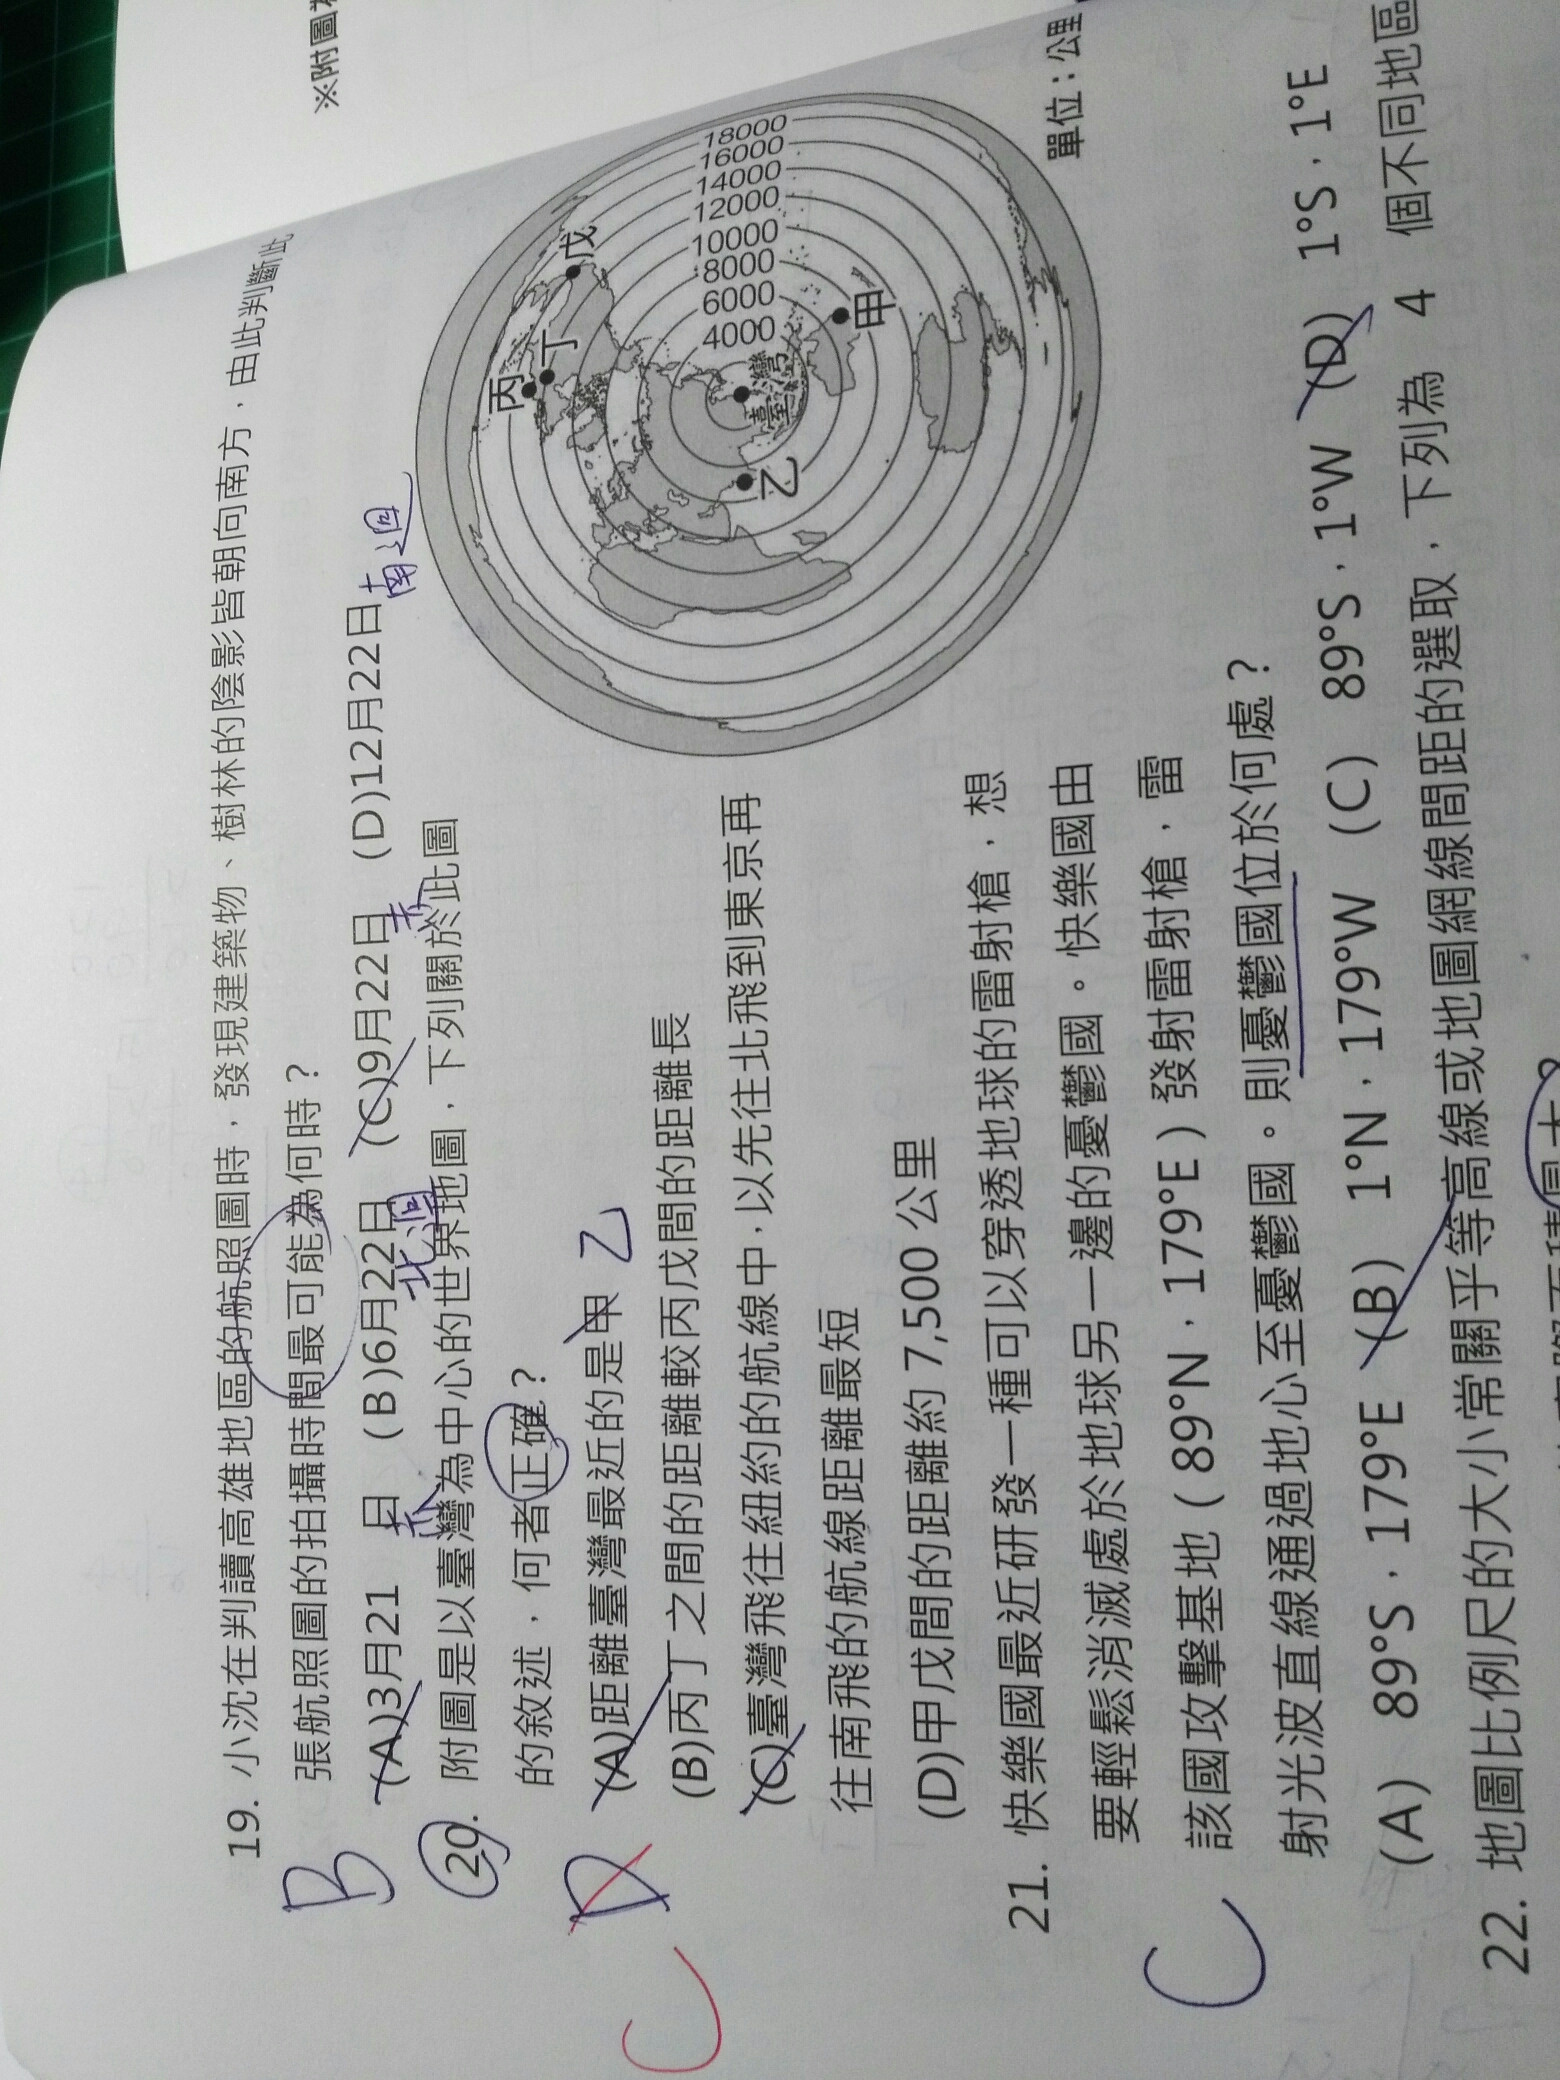 ※附圖
19. 小沈在判讀高雄地區的航照圖時，發現建築物、樹林的陰影皆朝向南方，由此判斷此
張航照圖的拍攝時間最可能為何時？
B
(A)3月21 日 (B)6月22日 (C)9月22日 (D)12月22日
北迴
南迴
20. 附圖是以臺灣為中心的世界地圖，下列關於此圖
的敘述，何者正確？
D
C
(A)距離臺灣最近的是甲 乙
(B)丙丁之間的距離較丙戊間的距離長
(C)臺灣飛往紐約的航線中，以先往北飛到東京再
往南飛的航線距離最短
(D)甲戊間的距離約 7,500 公里
丙
丁
戊
18000
16000
14000
12000
10000
8000
6000
4000
臺灣
乙
甲
單位：公里
21. 快樂國最近研發一種可以穿透地球的雷射槍，想
要輕鬆消滅處於地球另一邊的憂鬱國。快樂國由
該國攻擊基地（89°N，179°E）發射雷射槍，雷
射光波直線通過地心至憂鬱國。則憂鬱國位於何處？
C
(A) 89°S，179°E (B) 1°N，179°W (C) 89°S，1°W (D) 1°S，1°E
22. 地圖比例尺的大小常關乎等高線或地圖網線間距的選取，下列為 4 個不同地區